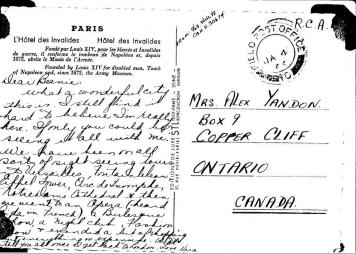 PARIS
L'Hôtel des Invalides Hôtel des Invalides
Fondé par Louis XIV, pour les blessés et Invalides
de guerre, il renferme le tombeau de Napoléon et, depuis
1872, abrite le Musée de l'Armée.
Founded by Louis XIV for disabled men. Tomb
of Napoleon and, since 1872, the Army Museum.
Dear Beanie
What a wonderful city
this is. I still find it
hard to believe I'm really
here. If only you could be
seeing it all with me.
We have been on all
sorts of sight seeing tours
to Versailles, Fontainbleau
Eiffel Tower, Arc de Triomphe,
Notre Dame Cathedral & then
we went to an Opera (heard
in French), a Burlesque
show, a night club, Fashion
show &
tell you all once I get back to London. Love
R.C.A.
FIELD POST OFFICE
JA 4
MRS. ALEX YANDON
BOX 9
COPPER CLIFF
ONTARIO
CANADA.